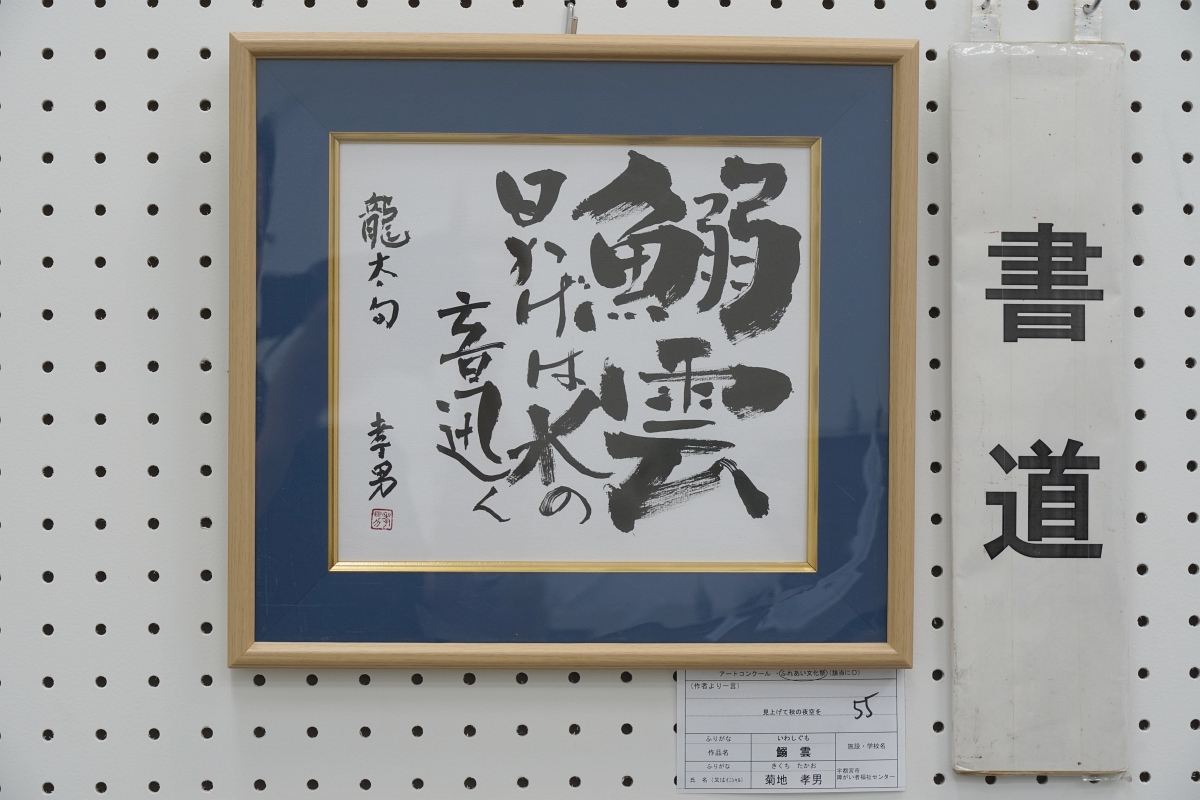 鰯雲
日かげは水の
音迅く
龍太句
孝男
書道
アートコンクール ・ ふれあい文化祭 (該当に○)
(作者より一言)
見上げて秋の夜空を
55
ふりがな
いわしぐも
作品名
鰯 雲
施設・学校名
ふりがな
きくち たかお
氏 名 (又はイニシャル)
菊地 孝男
宇都宮市
障がい者福祉センター